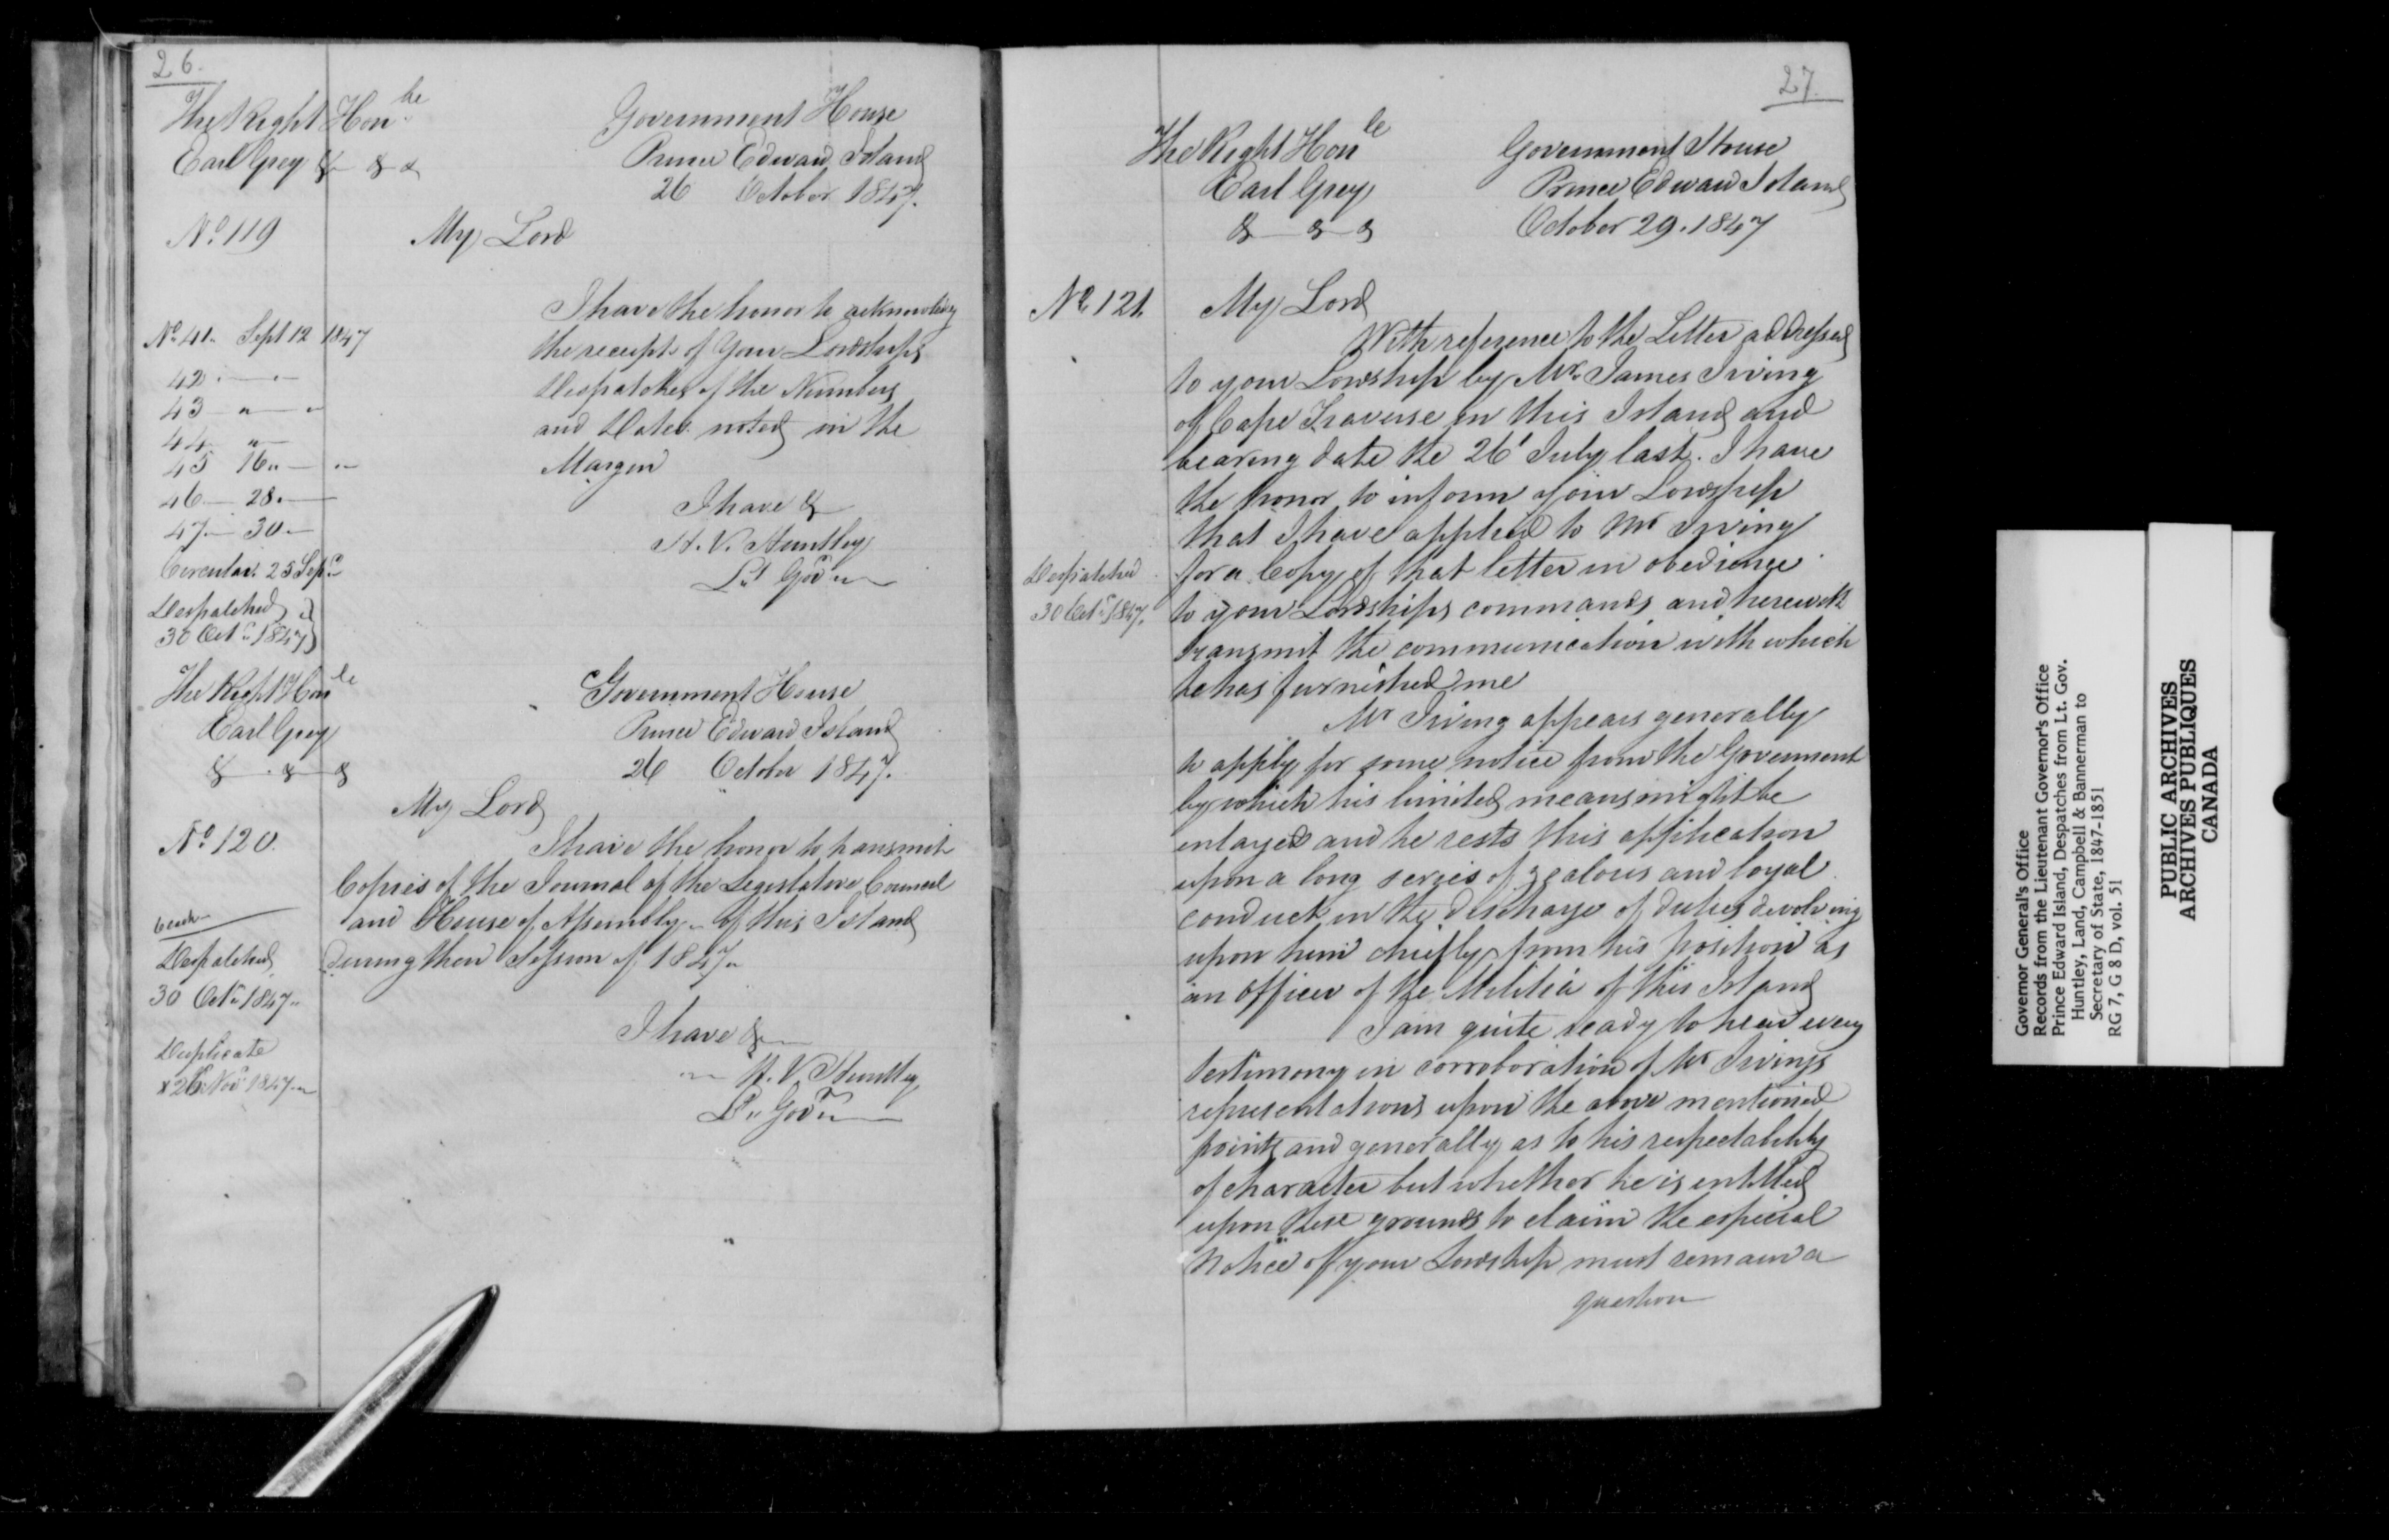 26.
The Right Honble
Earl Grey & & &
Government House
Prince Edward Island
26 October 1847.
No. 119
My Lord
I have the honor to acknowledg
the receipt of Your Lordships
Despatches of the Numbers
and Dates noted in the
Margin
No. 41 Sept 12 1847
42 " — "
43 " — "
44 " —
45 16 " — "
46 — 28 " —
47 — 30 —
Circular 25 Sepr
Despatched
30 Octr 1847
I have &
H. V. Huntley
Lt Govr
The Right Honble
Earl Grey
& & &
Government House
Prince Edward Island
26 October 1847.
My Lord
No. 120.
I have the honor to transmit
Copies of the Journal of the Legislative Council
and House of Assembly of this Island
During their Session of 1847
Despatched
30 Octr 1847
Duplicate
x 26 Novr 1847
I have &
H. V. Huntley
Lt Govr
27.
The Right Honle
Earl Grey
& & &
Government House
Prince Edward Island
October 29. 1847
No. 121.
My Lord
With reference to the Letter addressed
to your Lordship by Mr. James Irving
of Cape Traverse in this Island and
bearing date the 26t July last. I have
the honor to inform your Lordship
that I have applied to Mr Irving
for a Copy of that letter in obedience
to your Lordships commands and herewith
transmit the communication with which
he has furnished me
Despatched
30 Octr 1847.
Mr Irving appears generally
to apply for some notice from the Government
by which his limited means might be
enlarged and he rests this application
upon a long series of zealous and loyal
conduct in the discharge of duties devolving
upon him chiefly from his position as
an officer of the Militia of this Island
I am quite ready to hear every
testimony in corroboration of Mr Irvings
representations upon the above mentioned
points and generally as to his respectability
of character but whether he is entitled
upon these grounds to claim the especial
notice of your Lordship must remain a
question
Governor General's Office
Records from the Lieutenant Governor's Office
Prince Edward Island, Despatches from Lt. Gov.
Huntley, Land, Campbell & Bannerman to
Secretary of State, 1847-1851
RG 7, G 8 D, vol. 51
PUBLIC ARCHIVES
ARCHIVES PUBLIQUES
CANADA